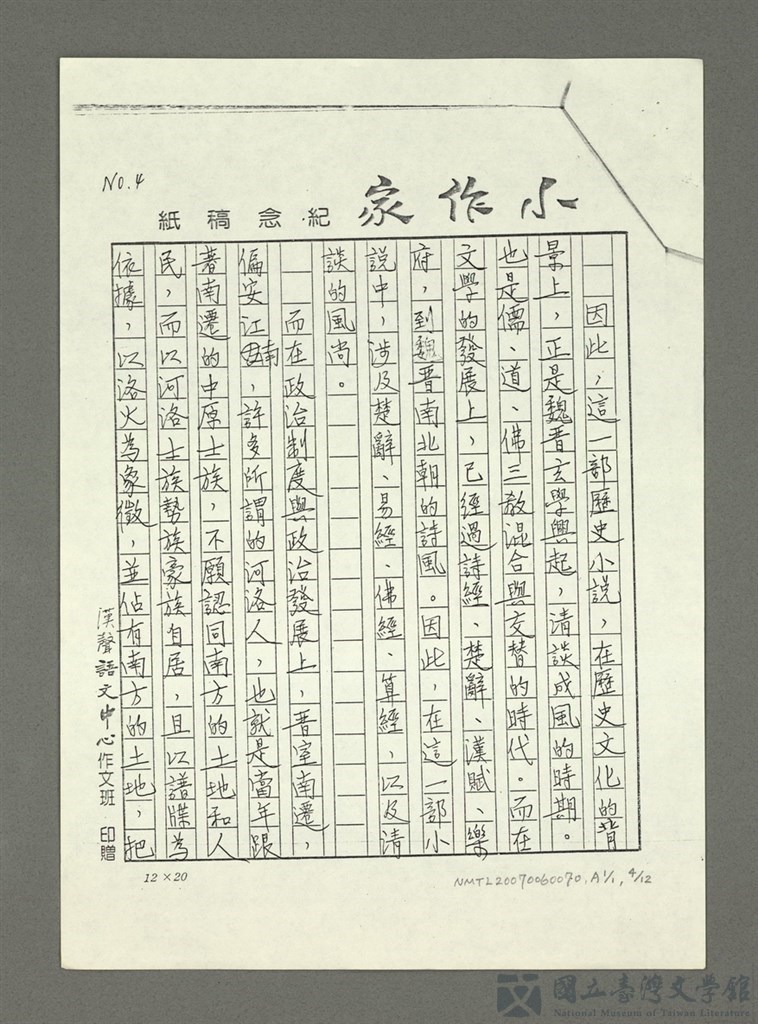 No.4
小作家
紀念稿紙
因此，這一部歷史小說，在歷史文化的背
景上，正是魏晋玄學興起，清談成風的時期。
也是儒、道、佛三教混合與交替的時代。而在
文學的發展上，已經過詩經、楚辭、漢賦、樂
府，到魏晋南北朝的詩風。因此，在這一部小
說中，涉及楚辭、易經、佛經、算經，以及清
談的風尚。
而在政治制度與政治發展上，晋室南遷，
偏安江南，許多所謂的河洛人，也就是當年跟
著南遷的中原士族，不願認同南方的土地和人
民，而以河洛士族勢族豪族自居，且以譜牒為
依據，以洛火為象徵，並佔有南方的土地，把
漢聲語文中心作文班 印贈
12×20
NMTL20070060070, A1/1, 4/12
國立臺灣文學館
National Museum of Taiwan Literature